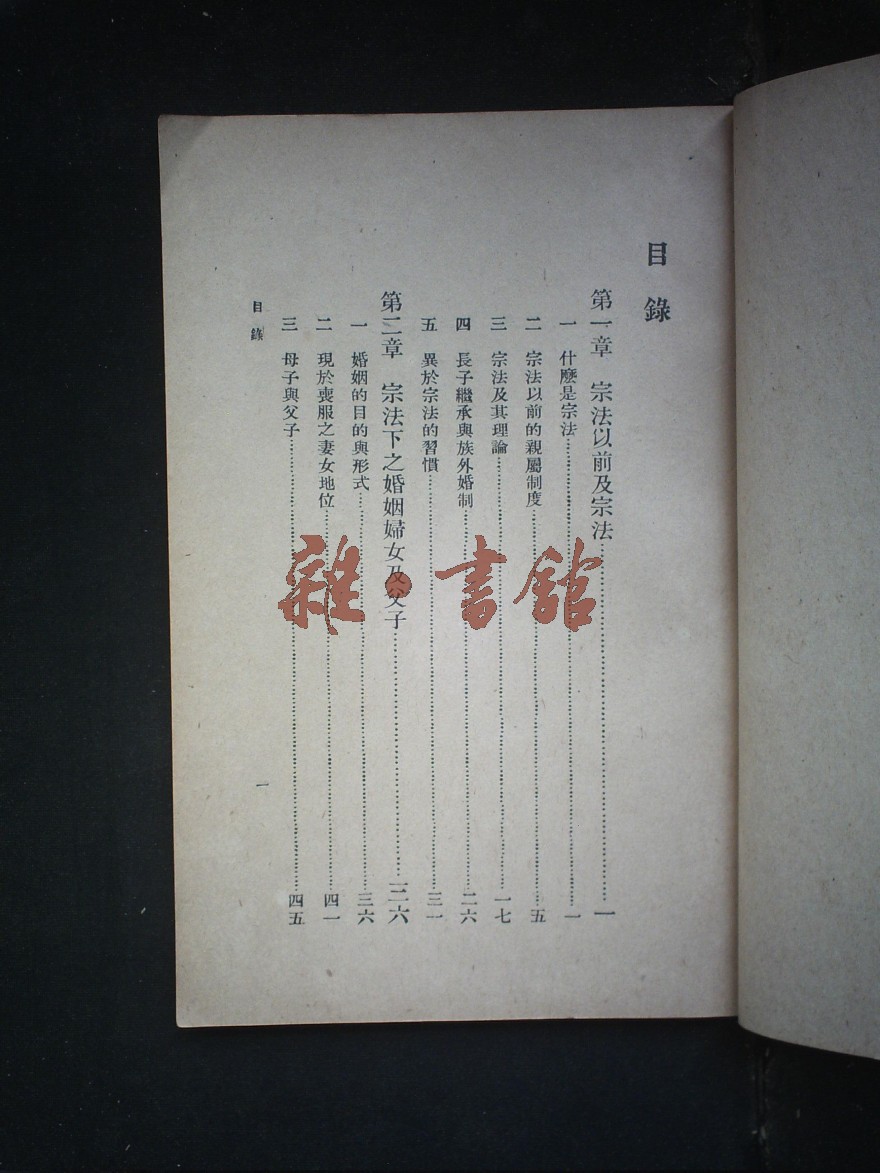 目錄
第一章 宗法以前及宗法……一
一 什麼是宗法……一
二 宗法以前的親屬制度……五
三 宗法及其理論……一七
四 長子繼承與族外婚制……二六
五 異於宗法的習慣……三一
第二章 宗法下之婚姻婦女及父子……三六
一 婚姻的目的與形式……三六
二 現於喪服之妻女地位……四一
三 母子與父子……四五
目錄
一
雜·書館